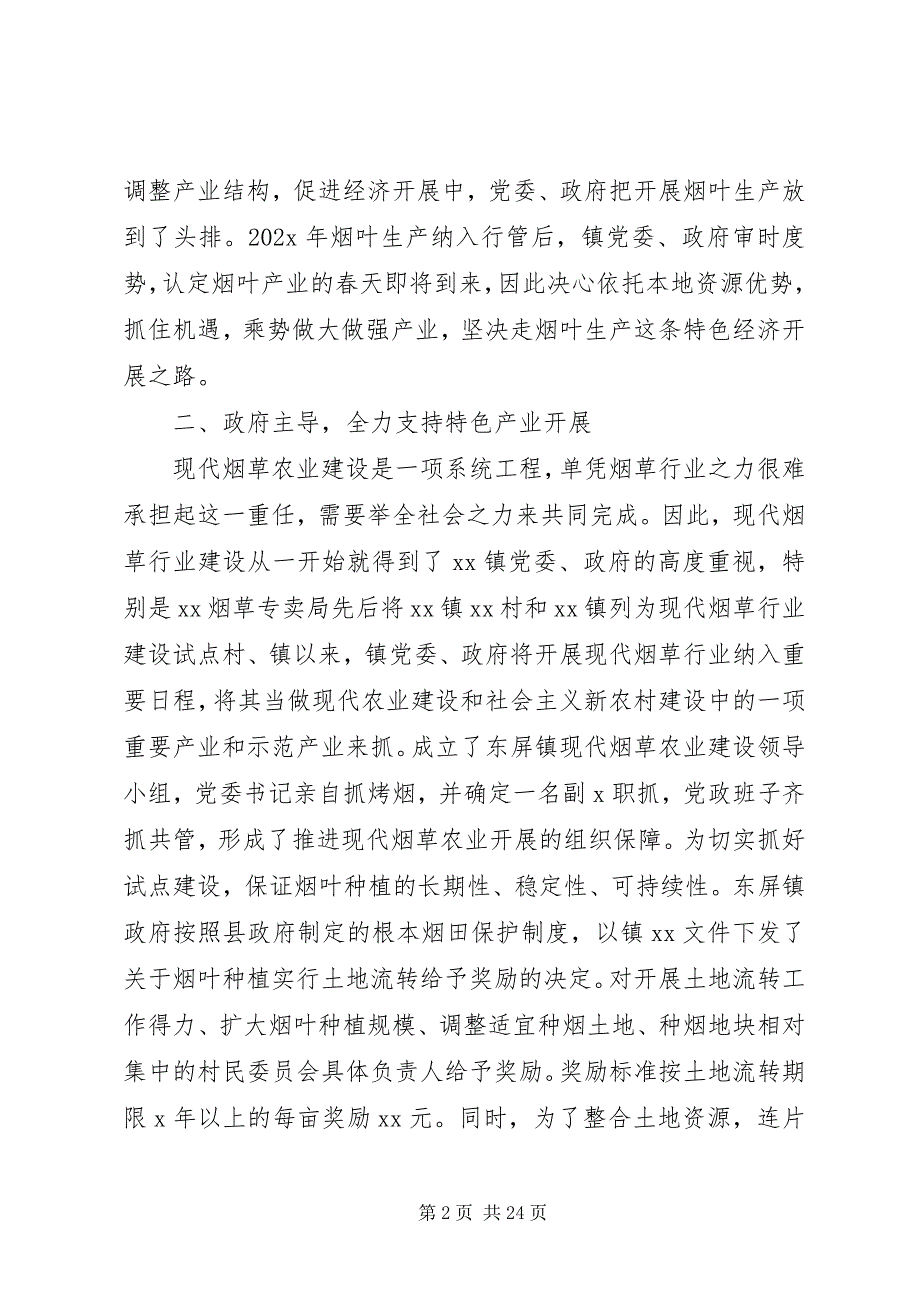 调整产业结构，促进经济开展中，党委、政府把开展烟叶生产放
到了头排。202x 年烟叶生产纳入行管后，镇党委、政府审时度
势，认定烟叶产业的春天即将到来，因此决心依托本地资源优势，
抓住机遇，乘势做大做强产业，坚决走烟叶生产这条特色经济开
展之路。
二、政府主导，全力支持特色产业开展
现代烟草农业建设是一项系统工程，单凭烟草行业之力很难
承担起这一重任，需要举全社会之力来共同完成。因此，现代烟
草行业建设从一开始就得到了 xx 镇党委、政府的高度重视，特
别是 xx 烟草专卖局先后将 xx 镇 xx 村和 xx 镇列为现代烟草行业
建设试点村、镇以来，镇党委、政府将开展现代烟草行业纳入重
要日程，将其当做现代农业建设和社会主义新农村建设中的一项
重要产业和示范产业来抓。成立了东屏镇现代烟草农业建设领导
小组，党委书记亲自抓烤烟，并确定一名副 x 职抓，党政班子齐
抓共管，形成了推进现代烟草农业开展的组织保障。为切实抓好
试点建设，保证烟叶种植的长期性、稳定性、可持续性。东屏镇
政府按照县政府制定的根本烟田保护制度，以镇 xx 文件下发了
关于烟叶种植实行土地流转给予奖励的决定。对开展土地流转工
作得力、扩大烟叶种植规模、调整适宜种烟土地、种烟地块相对
集中的村民委员会具体负责人给予奖励。奖励标准按土地流转期
限 x 年以上的每亩奖励 xx 元。同时，为了整合土地资源，连片
第 2 页 共 24 页